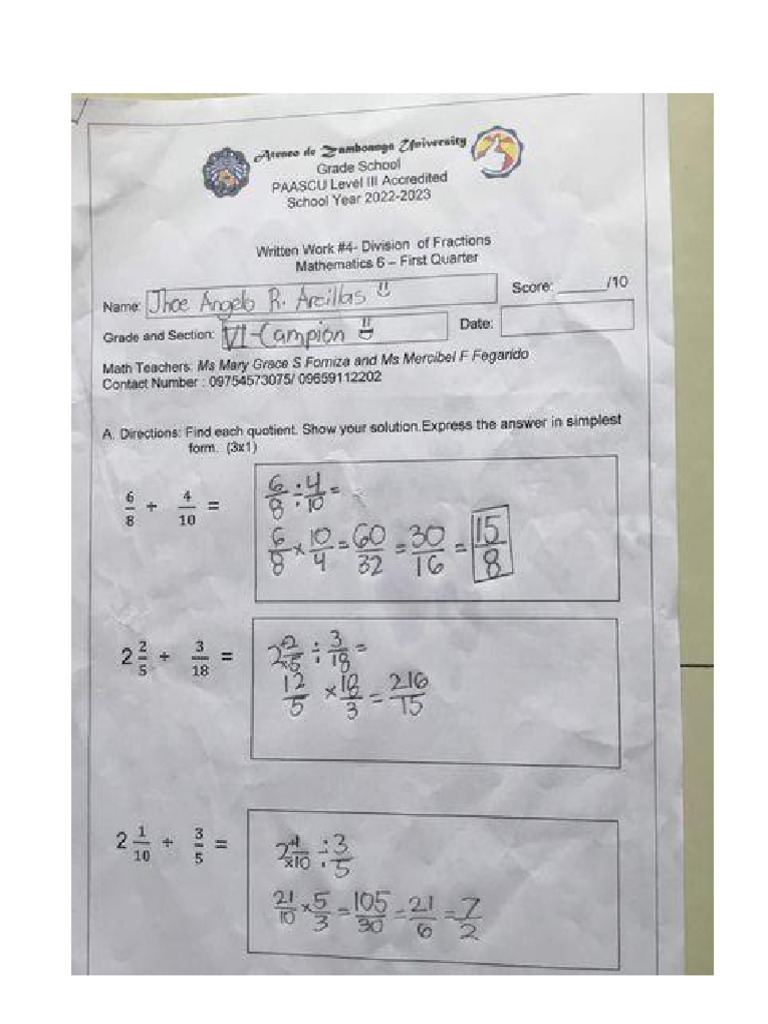 Ateneo de Zamboanga University
Grade School
PAASCU Level III Accredited
School Year 2022-2023
Written Work #4- Division of Fractions
Mathematics 6 – First Quarter
Name: Jhoe Angelo R. Arcillas
Score: ______/10
Grade and Section: VI-Campion
Date:
Math Teachers: Ms Mary Grace S Fomiza and Ms Mercibel F Fegarido
Contact Number : 09754573075/ 09659112202
A. Directions: Find each quotient. Show your solution.Express the answer in simplest
form. (3x1)
6/8 ÷ 4/10 =
6/8 ÷ 4/10 =
6/8 × 10/4 = 60/32 = 30/16 = 15/8
2 2/5 ÷ 3/18 =
2 +2/×5 ÷ 3/18 =
12/5 × 18/3 = 216/15
2 1/10 ÷ 3/5 =
2 +1/×10 ÷ 3/5
21/10 × 5/3 = 105/30 = 21/6 = 7/2